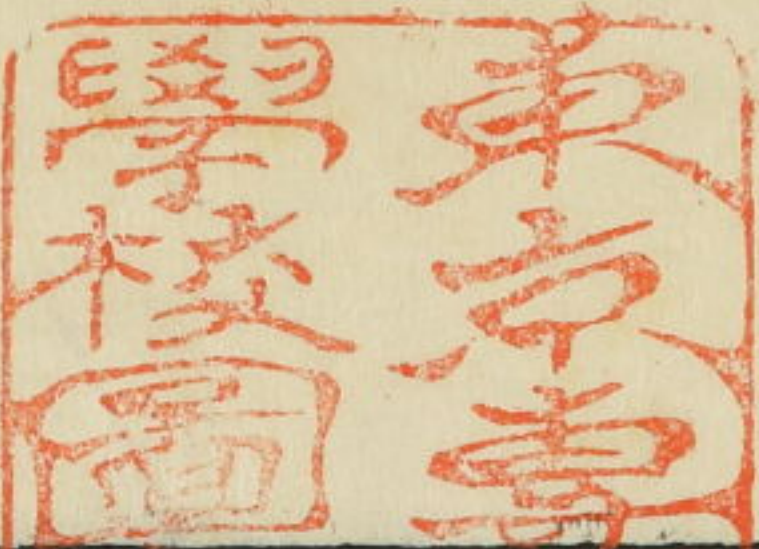 東京專
學校圖